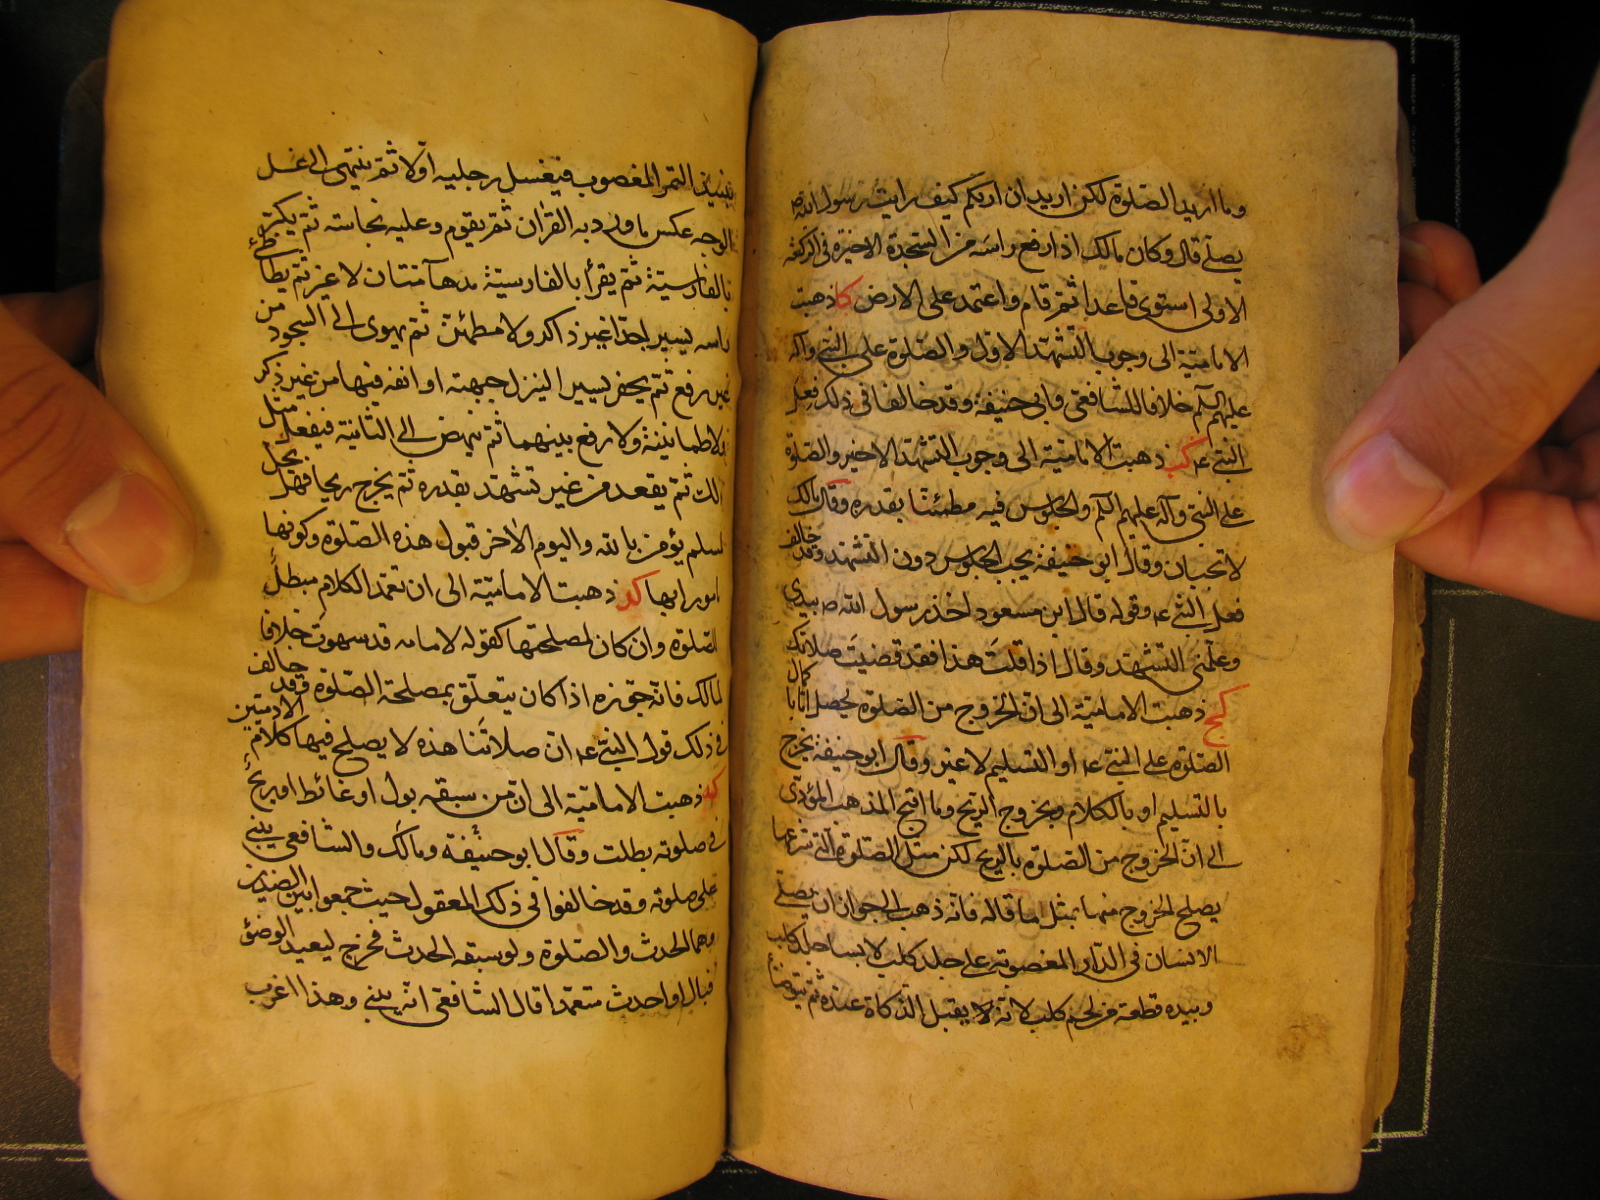 وما اريد الصلوة لكن اريد ان اريكم كيف رايت رسول الله ص
يصلي قال وكان مالك اذا رفع راسه من السجدة الاخيرة في الركعة
الاولى استوى قاعدا ثم قام واعتمد على الارض كا ذهبت
الامامية الى وجوب التشهد الاول والصلوة على النبي واله
عليهم السلم خلافا للشافعي وابي حنيفة وقد خالفا في ذلك فعل
النبي عم كب ذهبت الامامية الى وجوب التشهد الاخير والصلوة
على النبي وآله عليهم السلم والجلوس فيه مطمئنا بقدره وقال مالك
لا تجبان وقال ابو حنيفة يجب الجلوس دون التشهد وقد خالف
فعل النبي عم وقوله قال ابن مسعود اخذ رسول الله ص بيدي
وعلمني التشهد وقال اذا قلت هذا فقد قضيت صلاتك
كج ذهبت الامامية الى ان الخروج من الصلوة يحصل اما باكمال
الصلوة على النبي عم او التسليم لا غير وقال ابو حنيفة يخرج
بالتسليم او بالكلام وبخروج الريح وما اقبح المذهب المؤدي
الى ان الخروج من الصلوة بالريح لكن مثل الصلوة التي شرعها
يصلح الخروج منها بمثل ما قاله فانه ذهب الى جواز ان يصلي
الانسان في الدار المغصوبة على جلد كلب لابسا جلد كلب
وبيده قطعة من لحم كلب لانه لا يقبل الذكاة عنده ثم يتوضأ
بنبيذ التمر المغصوب فيغسل رجليه اولا ثم ينتهي الى غسل
الوجه عكس ما ورد به القران ثم يقوم وعليه نجاسة ثم يكبر
بالفارسية ثم يقرأ بالفارسية مدهآمتان لا غير ثم يطأطئ
راسه يسيرا جدا غير ذاكر ولا مطمئن ثم يهوى الى السجود من
غير رفع ثم يحفر يسيرا لينزل جبهته او انفه فيها من غير ذكر
ولا طمانينة ولا رفع بينهما ثم ينهض الى الثانية فيفعل مثل
ذلك ثم يقعد من غير تشهد بقدره ثم يخرج ريحا فهل يحل
لمسلم يؤمن بالله واليوم الاخر قبول هذه الصلوة وكونها
مامورا بها كد ذهبت الامامية الى ان تعمد الكلام مبطل
للصلوة وان كان لمصلحتها كقوله لامامه قد سهوت خلافا
لمالك فانه جوزه اذا كان يتعلق بمصلحة الصلوة وقد خالف
في ذلك قول النبي عم ان صلاتنا هذه لا يصلح فيها كلام الادميين
كه ذهبت الامامية الى ان من سبقه بول او غائط او ريح
في صلوته بطلت وقال ابو حنيفة ومالك والشافعي يبني
على صلوته وقد خالفوا في ذلك المعقول حيث جمعوا بين الضدين
وهما الحدث والصلوة ولو سبقه الحدث فخرج ليعيد الوضوء
فبال او احدث متعمدا قال الشافعي انه يبني وهذا اغرب